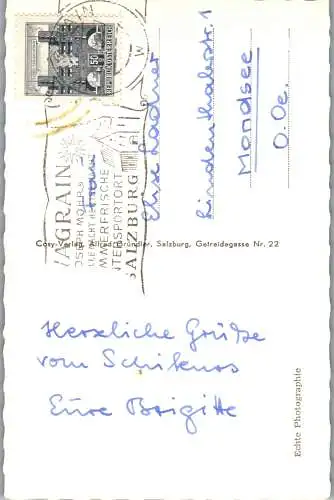 50
REPUBLIK ÖSTERREICH
WAGRAIN
JOSEPH MOHR
SOMMERFRISCHE
WINTERSPORTORT
SALZBURG
Frau
Elise Ladner
Lindenthalstr. 1
Mondsee
O.Oe.
Cosy-Verlag, Alfred Gründler, Salzburg, Getreidegasse Nr. 22
Herzliche Grüße
vom Schikurs
Eure Brigitte
Echte Photographie